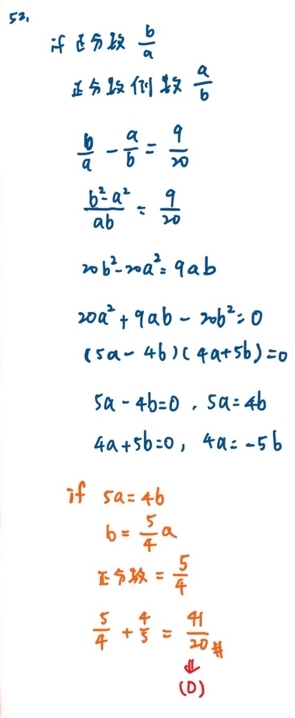 53.
if 正分数 b/a
正分数倒数 a/b
b/a - a/b = 9/20
b²-a²/ab = 9/20
20b²-20a² = 9ab
20a² + 9ab - 20b² = 0
(5a - 4b)(4a+5b) = 0
5a - 4b = 0 , 5a = 4b
4a + 5b = 0 , 4a = -5b
if 5a = 4b
b = 5/4 a
正分数 = 5/4
5/4 + 4/5 = 41/20 #
⇓
(D)